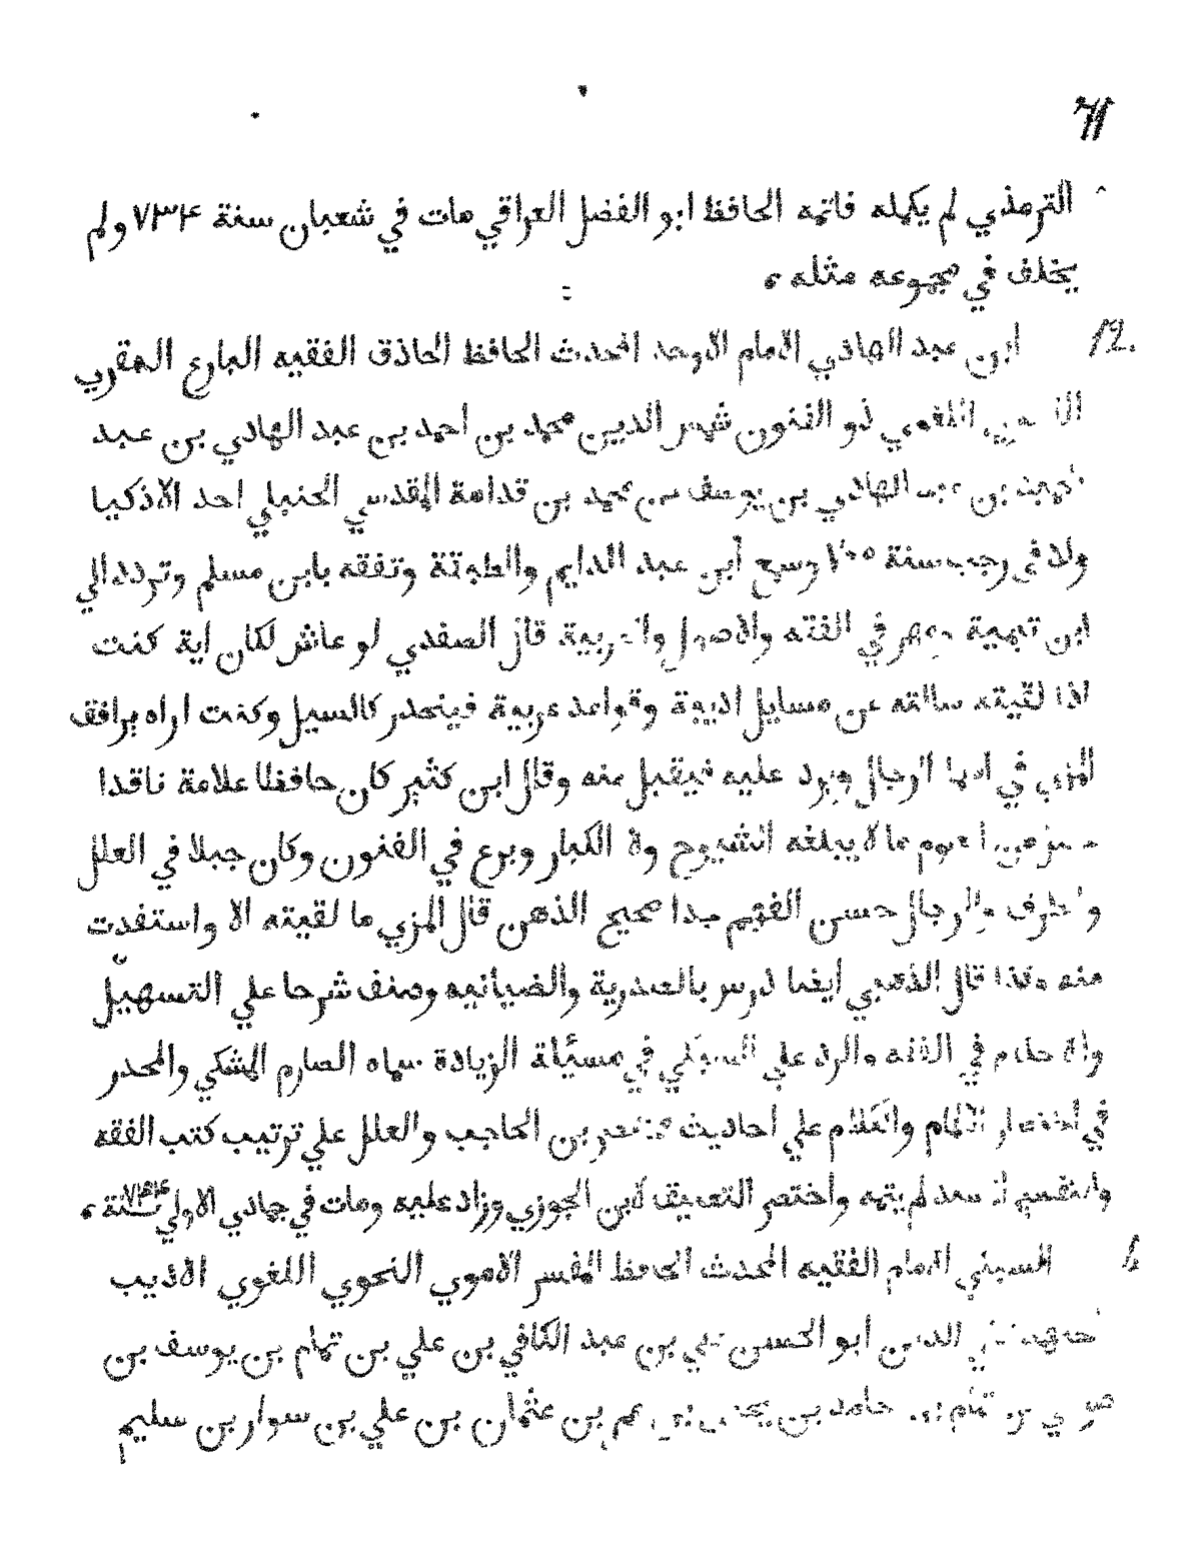 الترمذي لم يكمله فاتمه الحافظ ابو الفضل العراقي مات في شعبان سنة ٧٣٤ ولم
يخلف في مجموعه مثله
12. ابن عبد الهادي الامام الاوحد المحدث الحافظ الحاذق الفقيه البارع المقري
اللغوي ذو الفنون شمس الدين محمد بن احمد بن عبد الهادي بن عبد
الحميد بن عبد الهادي بن يوسف بن محمد بن قدامة المقدسي الحنبلي احد الاذكيا
ولد في رجب سنة ٧٠٥ وسمع ابن عبد الدايم والطبقة وتفقه بابن مسلم وتردد الي
ابن تيمية ومهر في الفقه والاصول والعربية قال الصفدي لو عاش لكان اية كنت
اذا لقيته سالته عن مسايل ادبية وقواعد عربية فينحدر كالسيل وكنت اراه يرافق
المزي في اسما الرجال ويرد عليه فيقبل منه وقال ابن كثير كان حافظا علامة ناقدا
حصل من العلوم ما لا يبلغه الشيوخ ولا الكبار وبرع في الفنون وكان جبلا في العلل
والطرف والرجال حسن الفهم جدا صحيح الذهن قال المزي ما لقيته الا واستفدت
منه وكذا قال الذهبي ايضا درس بالصدرية والضيائيه وصنف شرحا علي التسهيل
والاحكام في الفقه والرد علي السبكي في مسئالة الزيادة سماه الصارم المشكي والمحرر
في اختصار الالمام والكلام علي احاديث مختصر بن الحاجب والعلل علي ترتيب كتب الفقه
والتفسير المسند لم يتمه واختصر التعليق لابن الجوزي وزاد عليه ومات في جمادي الاولي سنة ٧٤٤
السبكي الامام الفقيه المحدث الحافظ المفسر الاصولي النحوي اللغوي الاديب
المجتهد تقي الدين ابو الحسن علي بن عبد الكافي بن علي بن تمام بن يوسف بن
موسي بن تمام بن حامد بن يحيي بن عمر بن عثمان بن علي بن سوار بن سليم